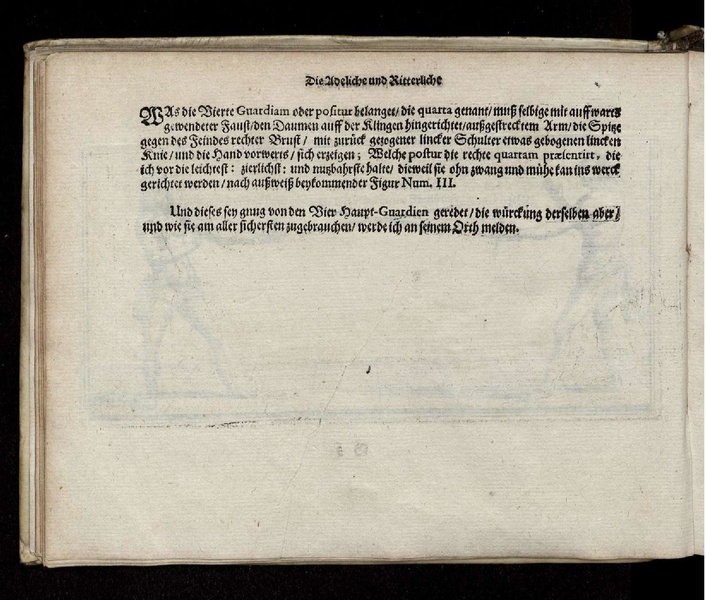 Die Adeliche und Ritterliche
WAs die Vierte Guardiam oder positur belanget/ die quarta genant/ muß selbige mit auffwarts
gewendeter Faust/ den Daumen auff der Klingen hingerichtet/ außgestrecktem Arm/ die Spitze
gegen des Feindes rechter Brust/ mit zurück gezogener lincker Schulter etwas gebogenen lincken
Knie/ und die Hand vorwerts/ sich erzeigen; Welche postur die rechte quartam præsentirt, die
ich vor die leichtest: zierlichst: und nutzbahrste halte/ dieweil sie ohn zwang und mühe kan ins werck
gerichtet werden/ nach außweiß beykommender Figur Num. III.
Und dieses sey gnug von den Vier Haupt-Guardien geredet/ die würckung derselben aber/
und wie sie am aller sichersten zugebrauchen/ werde ich an seinem Orth melden.